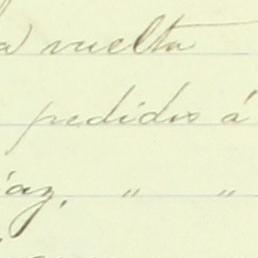 a vuelta
pedidos á
iaz, " "